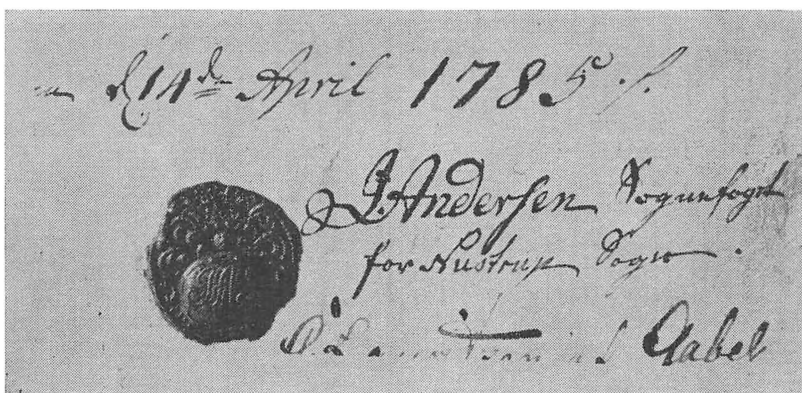 d 14de April 1785 /.
J. Andersen Sognefoget
for Nustrup Sogn .
Gabel